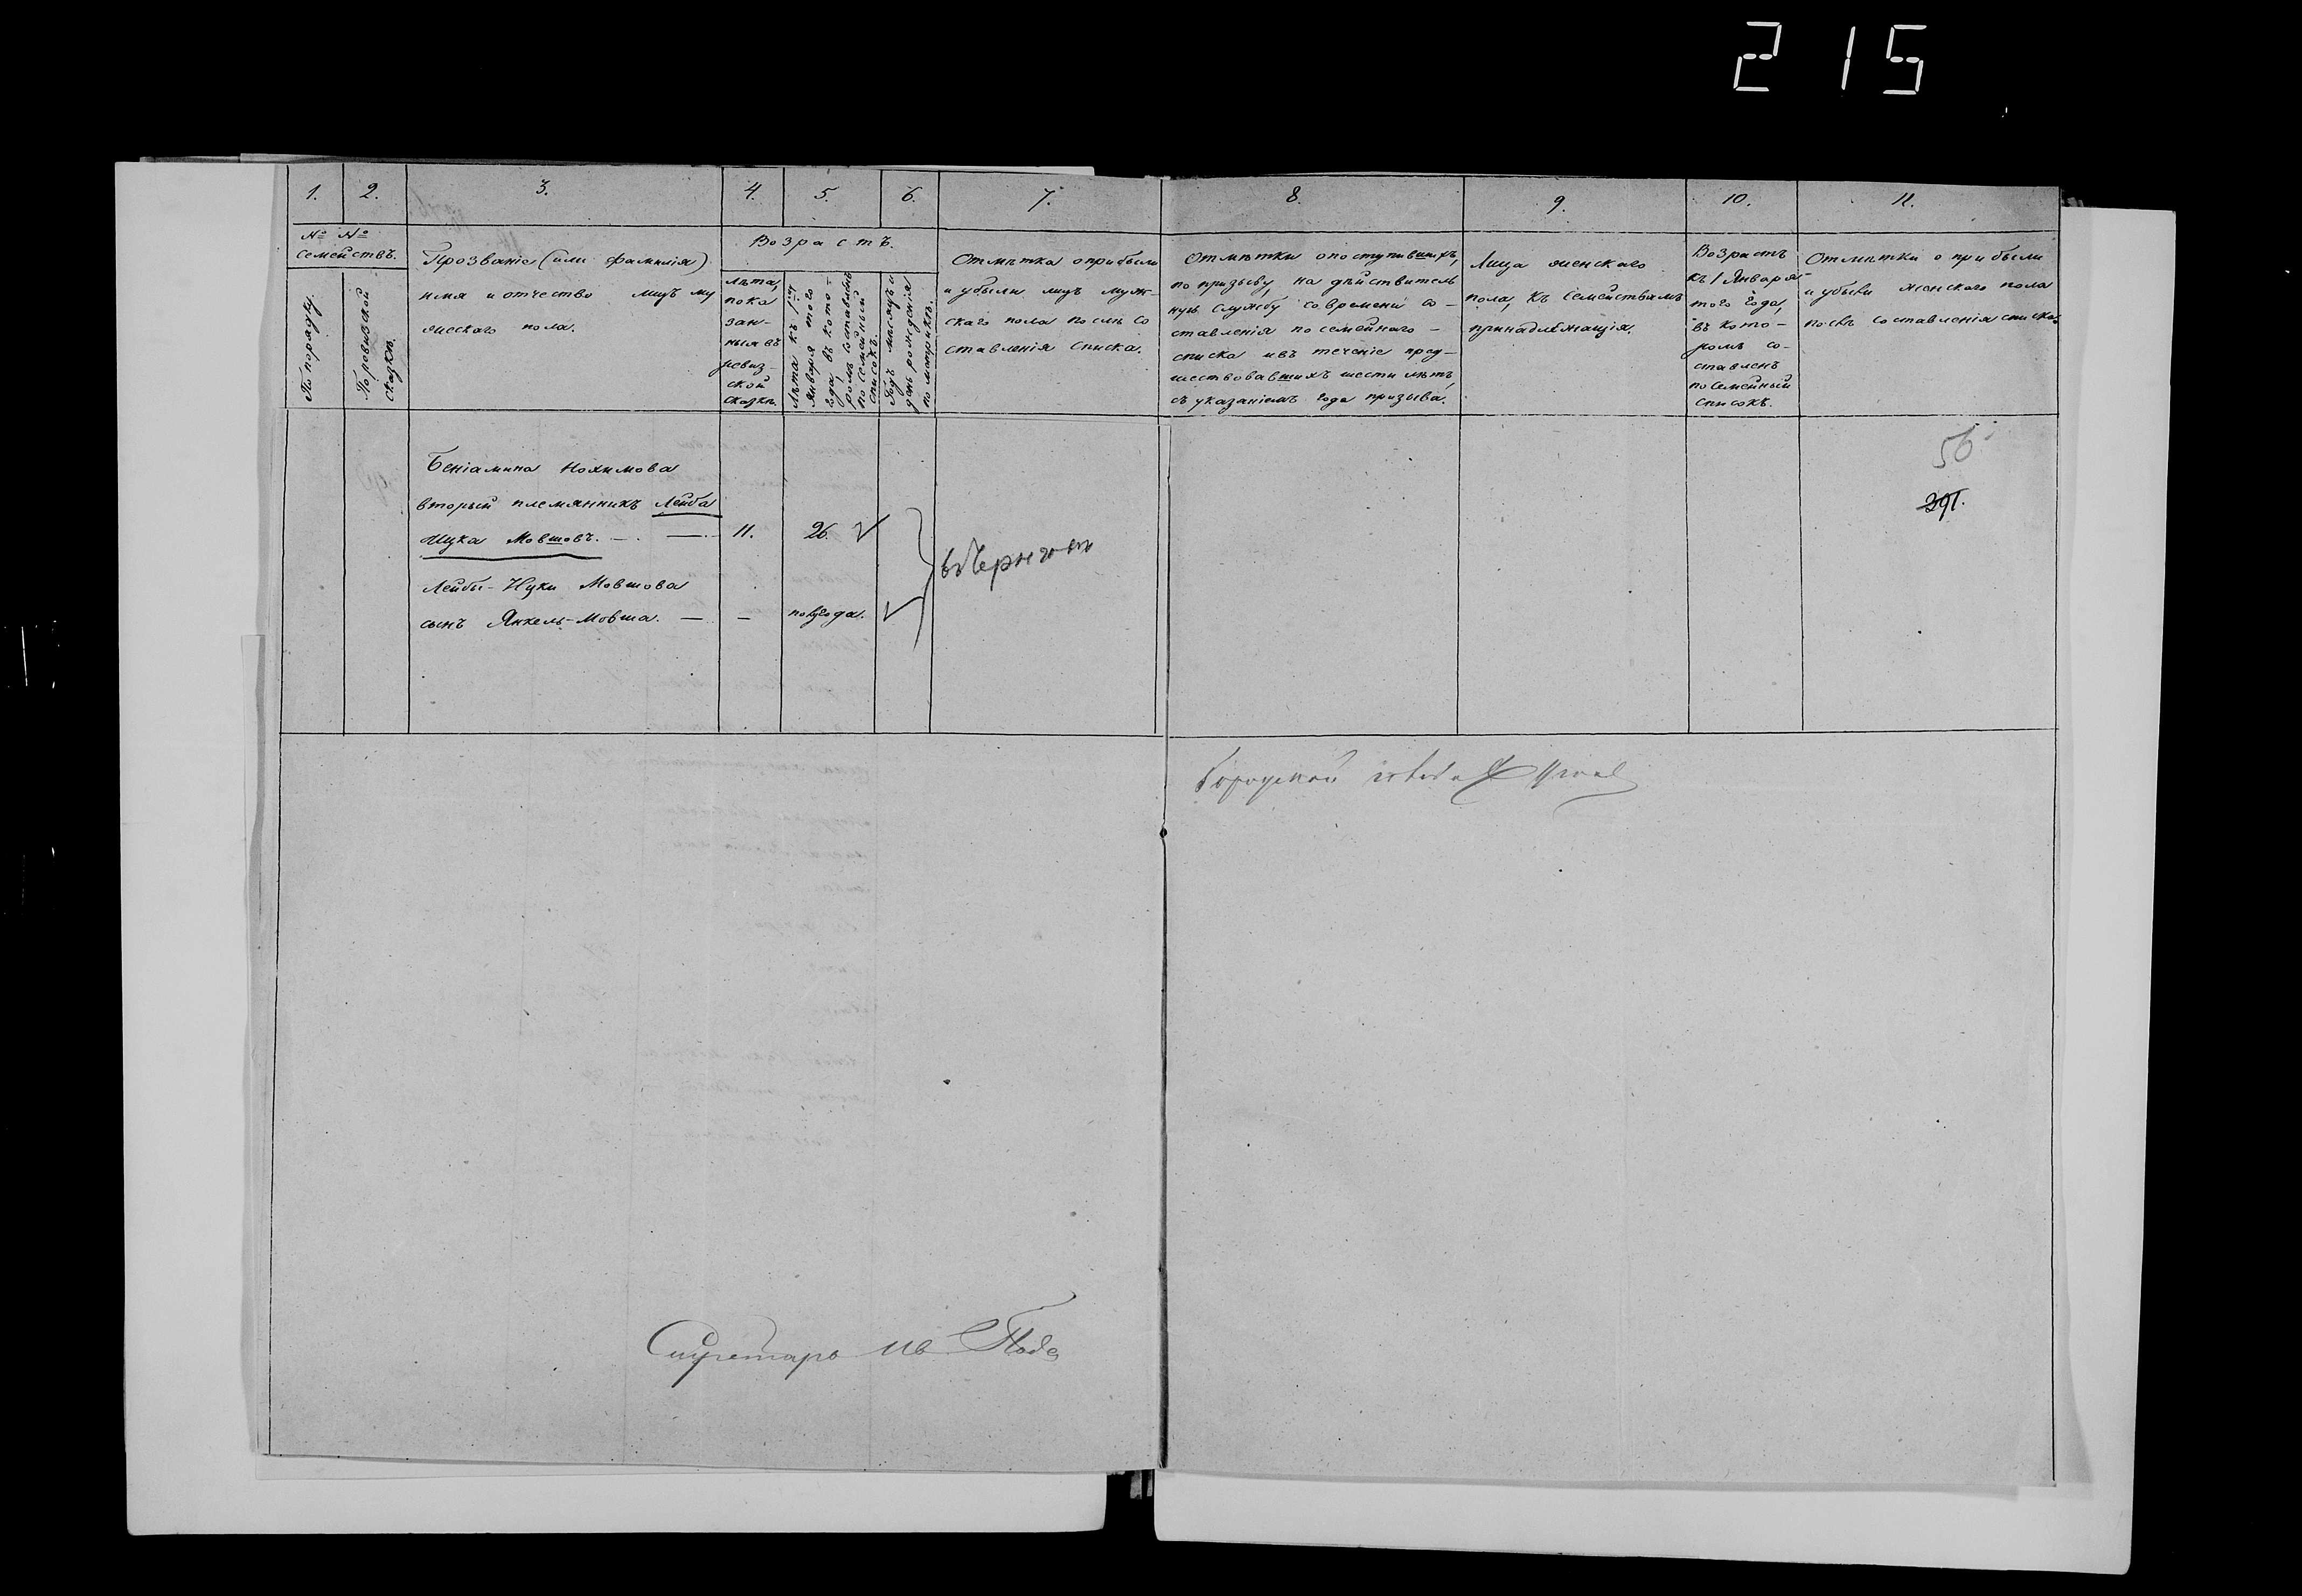 215
1. 2. 3. 4. 5. 6. 7. 8. 9. 10. 11.
№ №
семействъ.
По порядку.
По ревизской
сказкѣ.
Прозваніе (или фамилія)
имя и отчество лицъ му
жескаго пола.
Возрастъ.
лѣта,
пока
зан-
ныя въ
ревиз-
ской
сказкѣ.
Лѣта къ 1му
Января того
года, въ кото-
ромъ составленъ
посемейный
списокъ.
Годъ мѣсяцъ и
день рожденія
по метрикѣ.
Отмѣтка о прибыли
и убыли лицъ муж-
скаго пола послѣ со
ставленія списка.
Отмѣтки о поступившихъ,
по призыву, на действитель
ную службу со времени со-
ставленія посемейнаго-
списка и въ теченіе пред-
шествовавшихъ шести лѣтъ,
съ указаніемъ года призыва.
Лица женскаго
пола, къ семействамъ
принадлежащія.
Возрастъ
къ 1 Января
того года,
въ кото-
ромъ со-
ставленъ
посемейный
списокъ.
Отмѣтки о прибыли
и убыли женскаго пола
послѣ составленія списка.
56
391.
Беніамина Нохимова
вторый племянникъ Лейба
Ицка Мовшовъ. — — 11. 26
Лейбы-Ицки Мовшова
сынъ Янкель-Мовша. — — полугода.
Городской
Секретарь